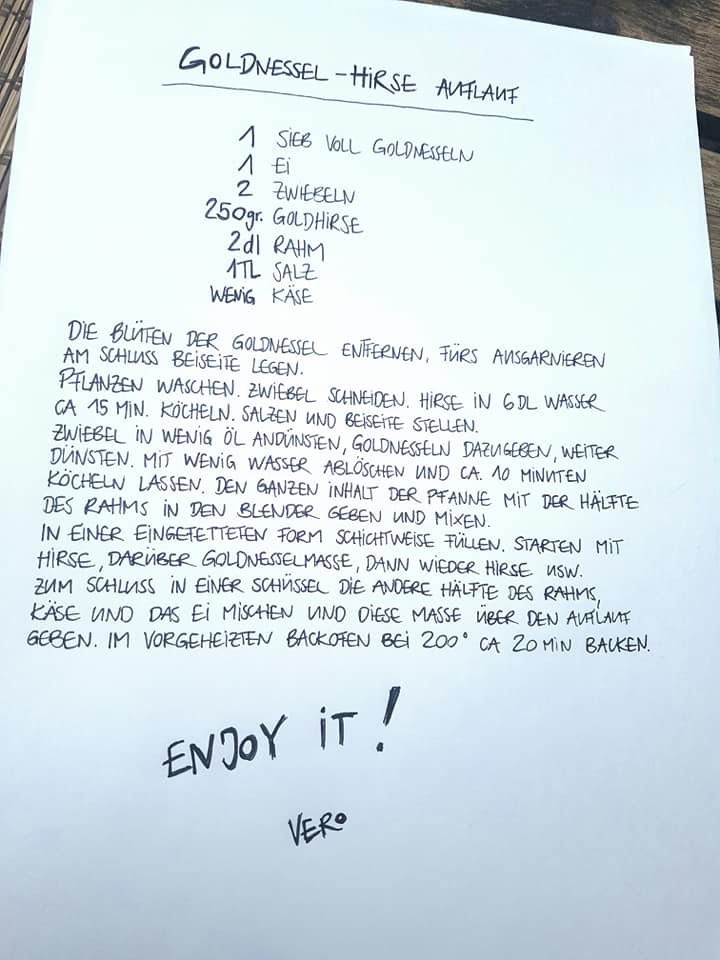 GOLDNESSEL-HIRSE AUFLAUF
1 SIEB VOLL GOLDNESSELN
1 Ei
2 ZWIEBELN
250gr. GOLDHIRSE
2dl RAHM
1TL SALZ
WENIG KÄSE
DIE BLÜTEN DER GOLDNESSEL ENTFERNEN, FÜRS AUSGARNIEREN
AM SCHLUSS BEISEITE LEGEN.
PFLANZEN WASCHEN. ZWIEBEL SCHNEIDEN. HIRSE IN 6DL WASSER
CA 15 MIN. KÖCHELN. SALZEN UND BEISEITE STELLEN.
ZWIEBEL IN WENIG ÖL ANDÜNSTEN, GOLDNESSELN DAZUGEBEN, WEITER
DÜNSTEN. MIT WENIG WASSER ABLÖSCHEN UND CA. 10 MINUTEN
KÖCHELN LASSEN. DEN GANZEN INHALT DER PFANNE MIT DER HÄLFTE
DES RAHMS IN DEN BLENDER GEBEN UND MIXEN.
IN EINER EINGEFETTETEN FORM SCHICHTWEISE FÜLLEN. STARTEN MIT
HIRSE, DARÜBER GOLDNESSELMASSE, DANN WIEDER HIRSE USW.
ZUM SCHLUSS IN EINER SCHÜSSEL DIE ANDERE HÄLFTE DES RAHMS,
KÄSE UND DAS EI MISCHEN UND DIESE MASSE ÜBER DEN AUFLAUF
GEBEN. IM VORGEHEIZTEN BACKOFEN BEI 200° CA 20 MIN BACKEN.
ENJOY IT!
VERO